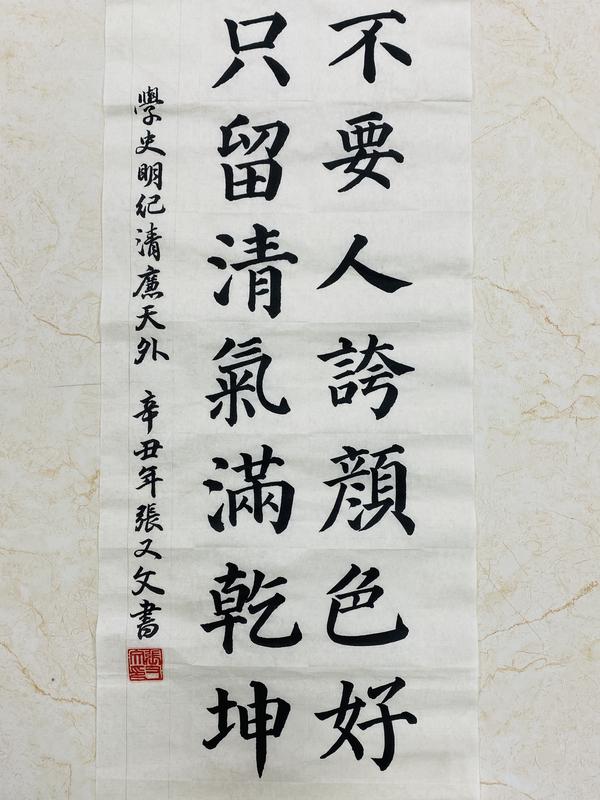 不要人誇顏色好
只留清氣滿乾坤
學史明紀清廉天外 辛丑年張又文書